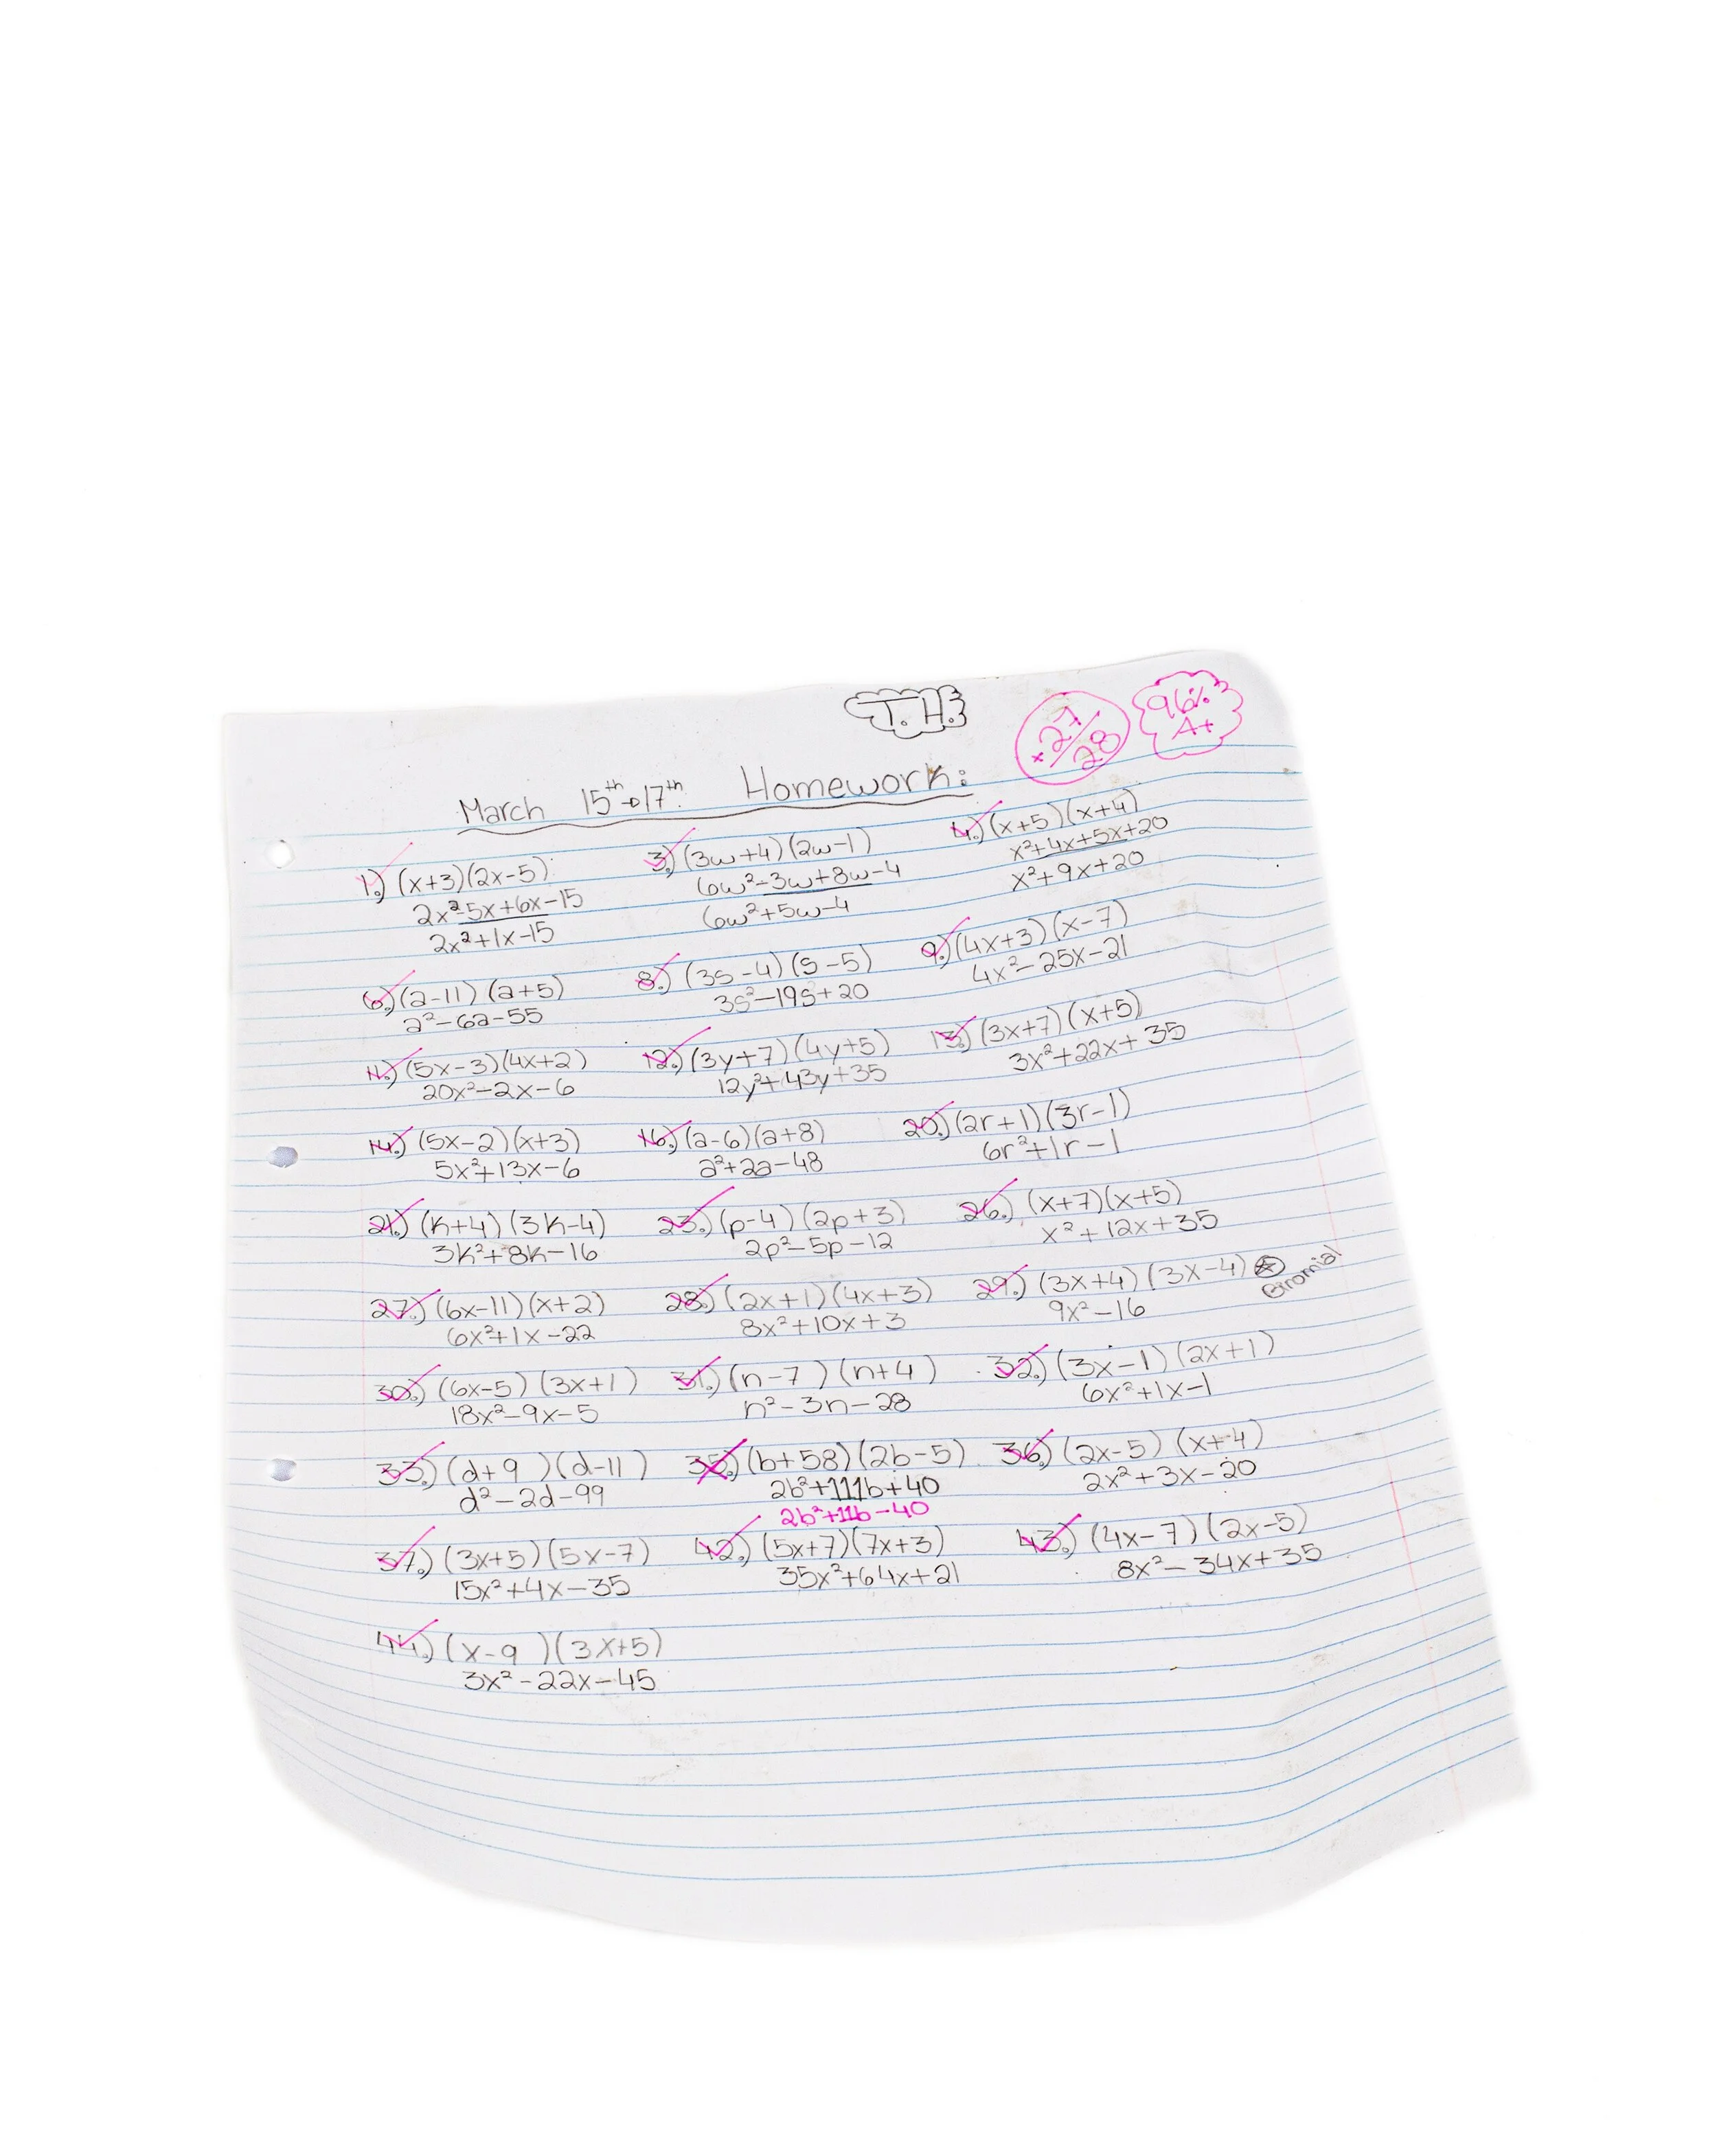 T. H.
+27/28
96% A+
March 15th→17th. Homework:
1.) (x+3)(2x-5)
2x²-5x+6x-15
2x²+1x-15
3.) (3w+4)(2w-1)
6w²-3w+8w-4
6w²+5w-4
4.) (x+5)(x+4)
x²+4x+5x+20
x²+9x+20
6.) (a-11)(a+5)
a²-6a-55
8.) (3s-4)(s-5)
3s²-19s+20
9.) (4x+3)(x-7)
4x²-25x-21
11.) (5x-3)(4x+2)
20x²-2x-6
12.) (3y+7)(4y+5)
12y²+43y+35
13.) (3x+7)(x+5)
3x²+22x+35
14.) (5x-2)(x+3)
5x²+13x-6
16.) (a-6)(a+8)
a²+2a-48
20.) (2r+1)(3r-1)
6r²+1r-1
21.) (k+4)(3k-4)
3k²+8k-16
23.) (p-4)(2p+3)
2p²-5p-12
26.) (x+7)(x+5)
x²+12x+35
27.) (6x-11)(x+2)
6x²+1x-22
28.) (2x+1)(4x+3)
8x²+10x+3
29.) (3x+4)(3x-4) Binomial
9x²-16
30.) (6x-5)(3x+1)
18x²-9x-5
31.) (n-7)(n+4)
n²-3n-28
32.) (3x-1)(2x+1)
6x²+1x-1
33.) (d+9)(d-11)
d²-2d-99
35.) (b+58)(2b-5)
2b²+111b+40
2b²+11b-40
36.) (2x-5)(x+4)
2x²+3x-20
37.) (3x+5)(5x-7)
15x²+4x-35
42.) (5x+7)(7x+3)
35x²+64x+21
43.) (4x-7)(2x-5)
8x²-34x+35
44.) (x-9)(3x+5)
3x²-22x-45